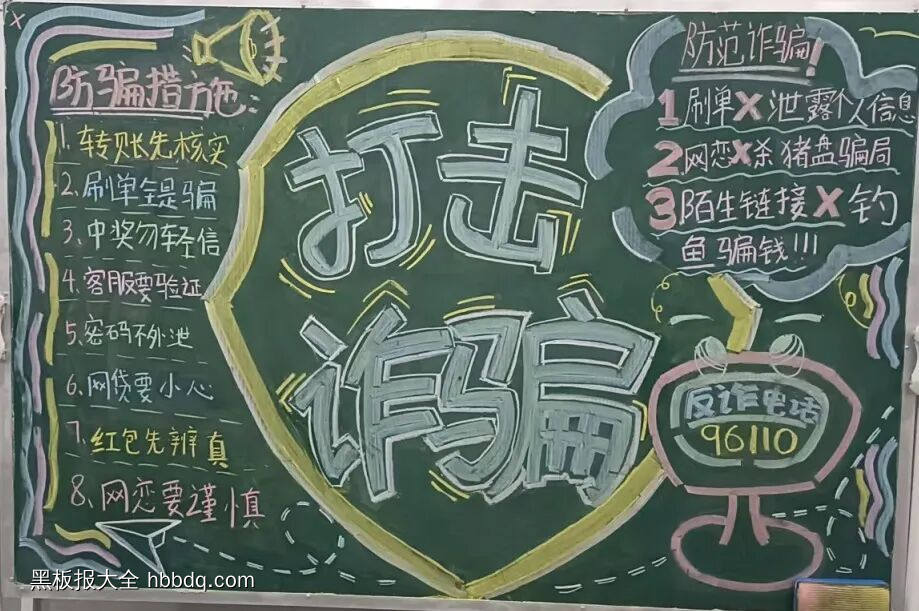 防骗措施:
1、转账先核实
2、刷单全是骗
3、中奖勿轻信
4、客服要验证
5、密码不外泄
6、网贷要小心
7、红包先辨真
8、网恋要谨慎
打击
诈骗
防范诈骗!
1刷单X泄露个人信息
2网恋X杀猪盘骗局
3陌生链接X钓
鱼骗钱!!!
反诈电话
96110
黑板报大全 hbbdq.com